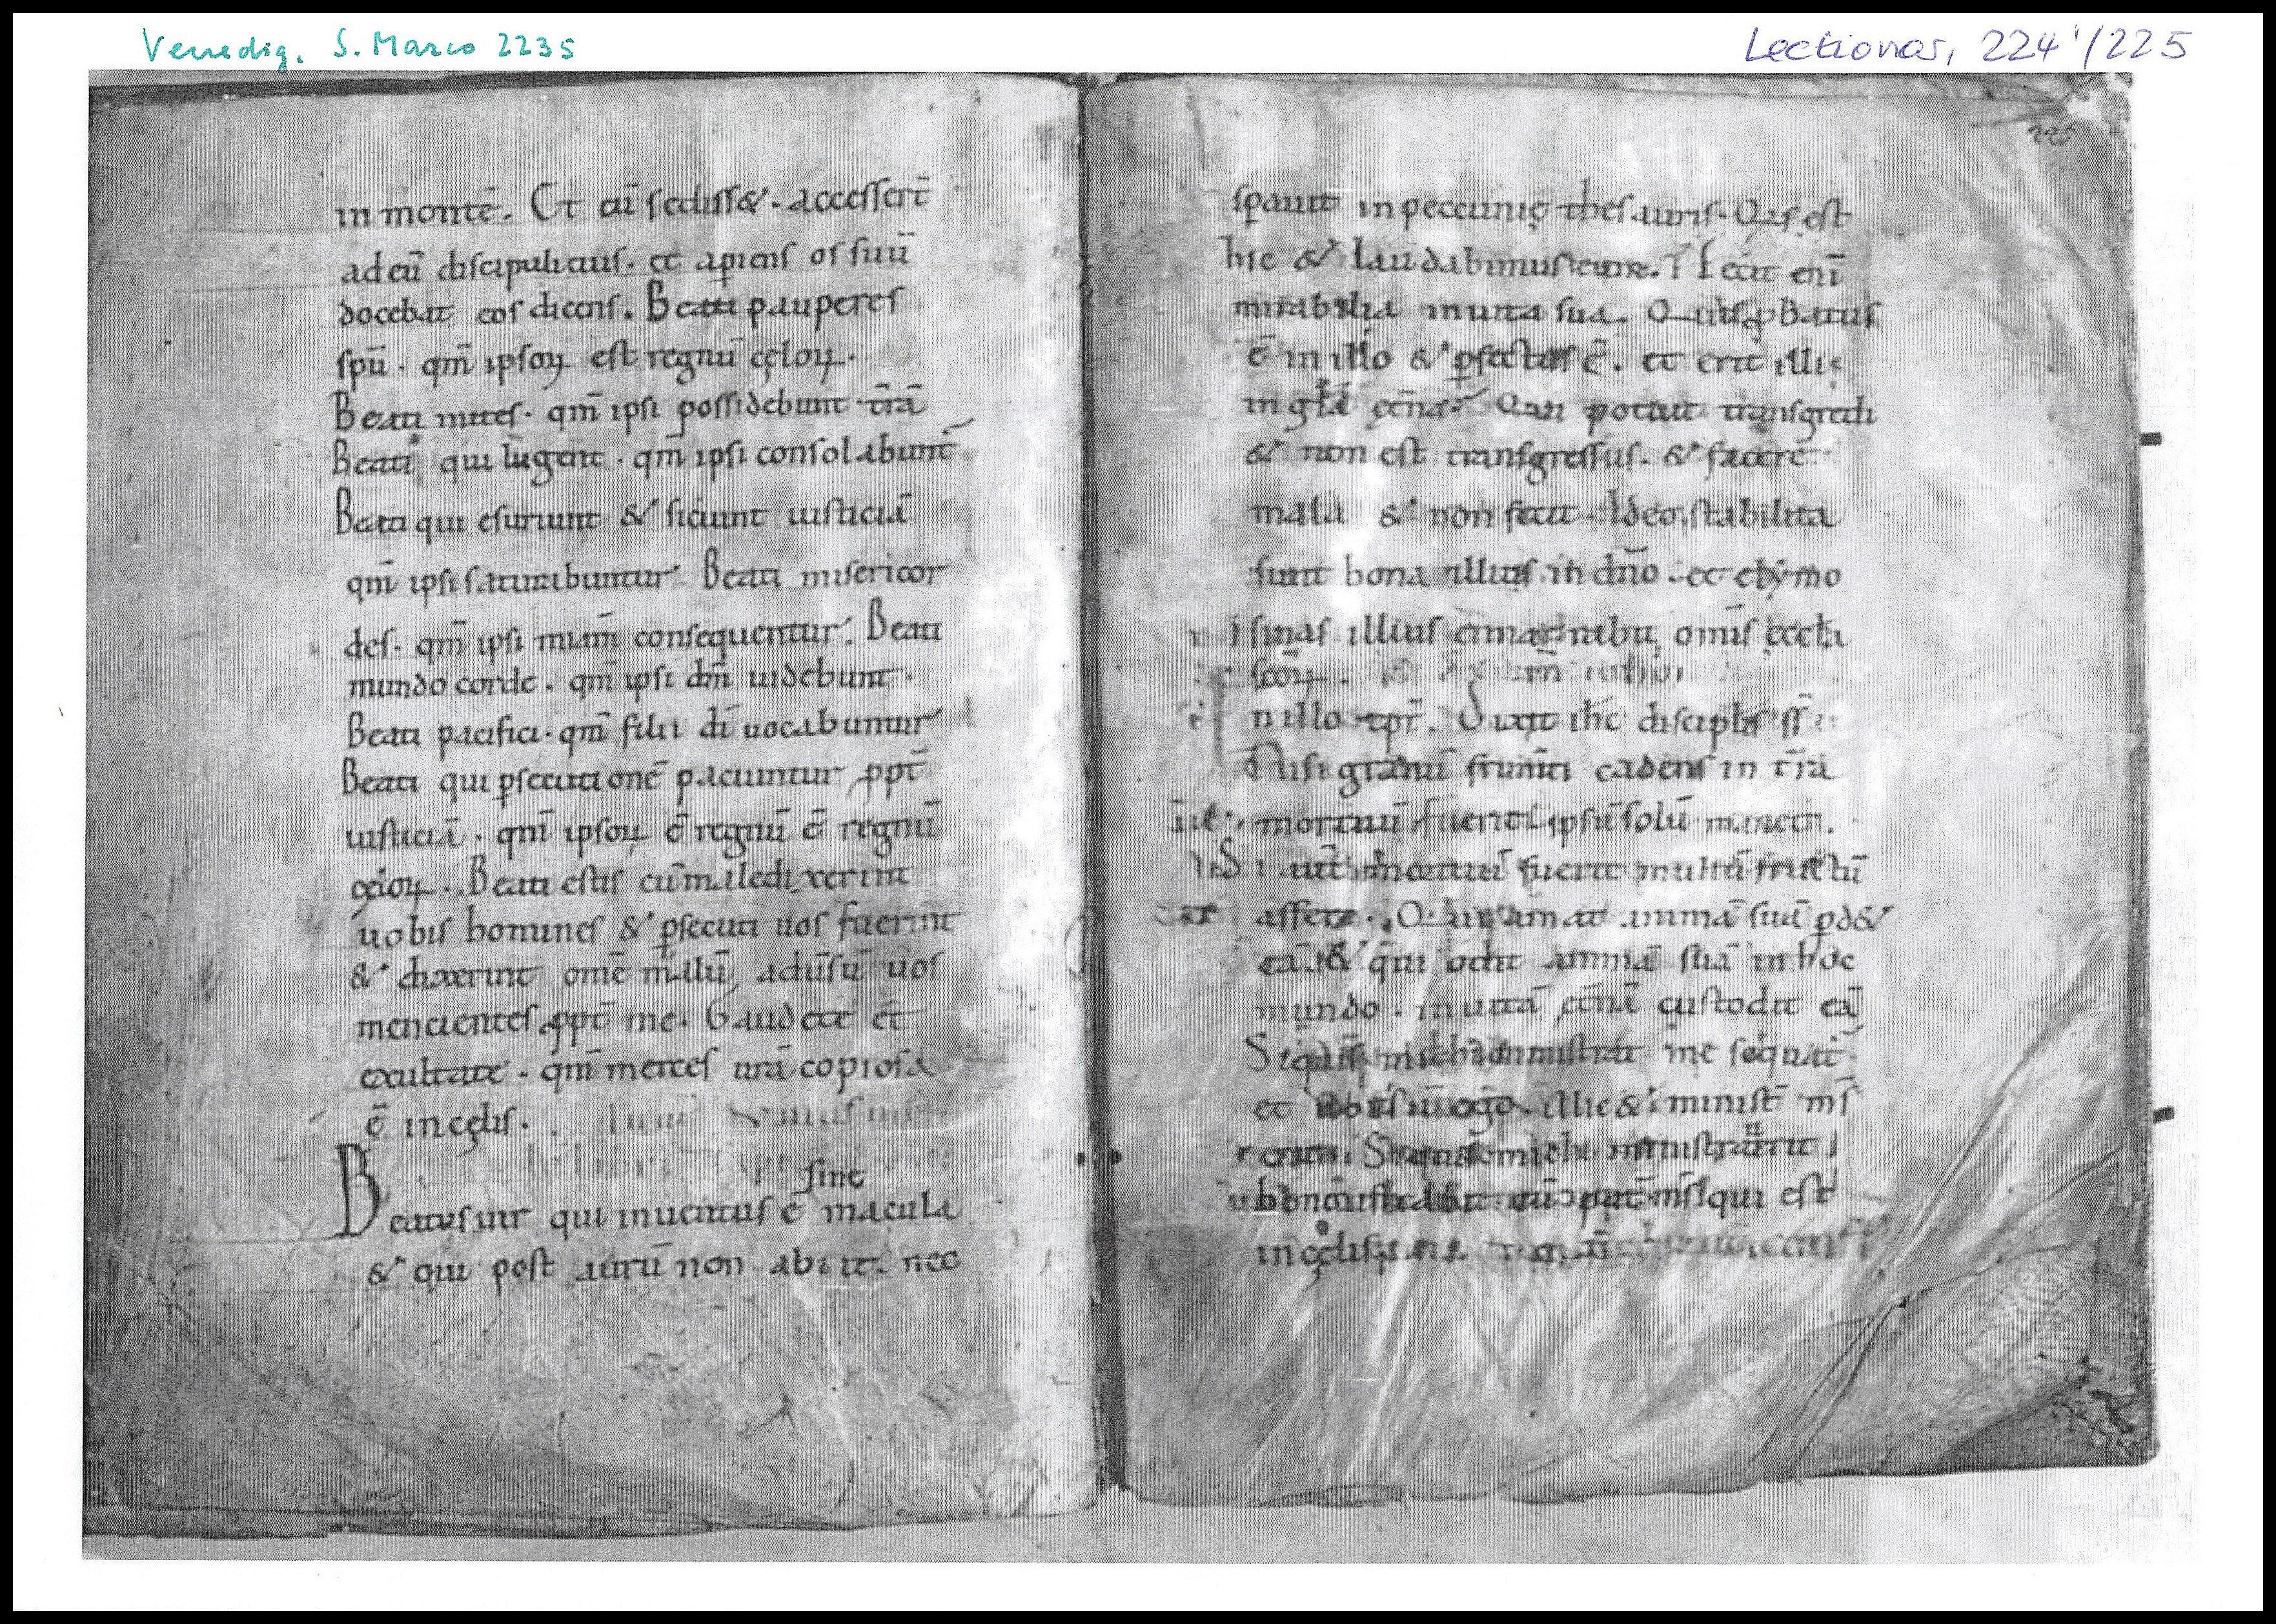 Venedig. S. Marco 2235
Lectionar, 224'/225
in montē. Et cū sediss&. accesserт̄
ad eū discipuli eius. et apiens os suū
docebat eos dicens. Beati pauperes
spū. qm̄ ipsoꝝ est regnū cęloꝝ.
Beati mites. qm̄ ipsi possidebunt tr̄ā
Beati qui lugent. qm̄ ipsi consolabunt̄
Beati qui esuriunt & siciunt iusticiā
qm̄ ipsi saturabuntur. Beati misericor
des. qm̄ ipsi miam̄ consequentur. Beati
mundo corde. qm̄ ipsi dm̄ uidebunt.
Beati pacifici. qm̄ filii dī uocabuntur
Beati qui ꝑsecutionē paciuntur ꝓpt̄
iusticiā. qm̄ ipsoꝝ ē regnū ē regnū
cęloꝝ. Beati estis cū maledixerint
uobis homines & ꝑsecuti uos fuerint
& dixerint omē malū aduīsū uos
mencientes ꝓpt̄ me. Gaudete et
exultate. qm̄ merces urā copiosa
ē in cęlis.
sine
Beatus uir qui inuentus ē macula
& qui post aurū non abiit. nec
225
sꝑauit in peccunię thesauris. Qis est
hic & laudabimus eum. Fecit enī
mirabilia in uita sua. Quis ꝓbatus
ē in illo & ꝑfectus ē. et erit illi
in gła ęt̄na. Qui potuit transgredi
& non est transgressus. & facere
mala & non fecit. Ideo stabilita
sunt bona illius in dn̄o. et elymo
sinas illius enarrabit omīs ęccła
scōꝝ.
In illo tpr̄. Dixit ihc discipłis
Nisi granū frum̄ti cadens in tr̄a
mortuū fuerit ipsū solū manet.
Si aut̄ mortuū fuerit multū fructū
affert. Qui amat animā suā ꝑd&
eā. & qui odit animā suā in hoc
mundo. in uitā ęt̄nā custodit eā
Siquis michi ministrat me sequat̄
et ubi sū ego. illic & minist̄ ms̄
erit. Siquis michi ministrauerit
qui est
in cęlis